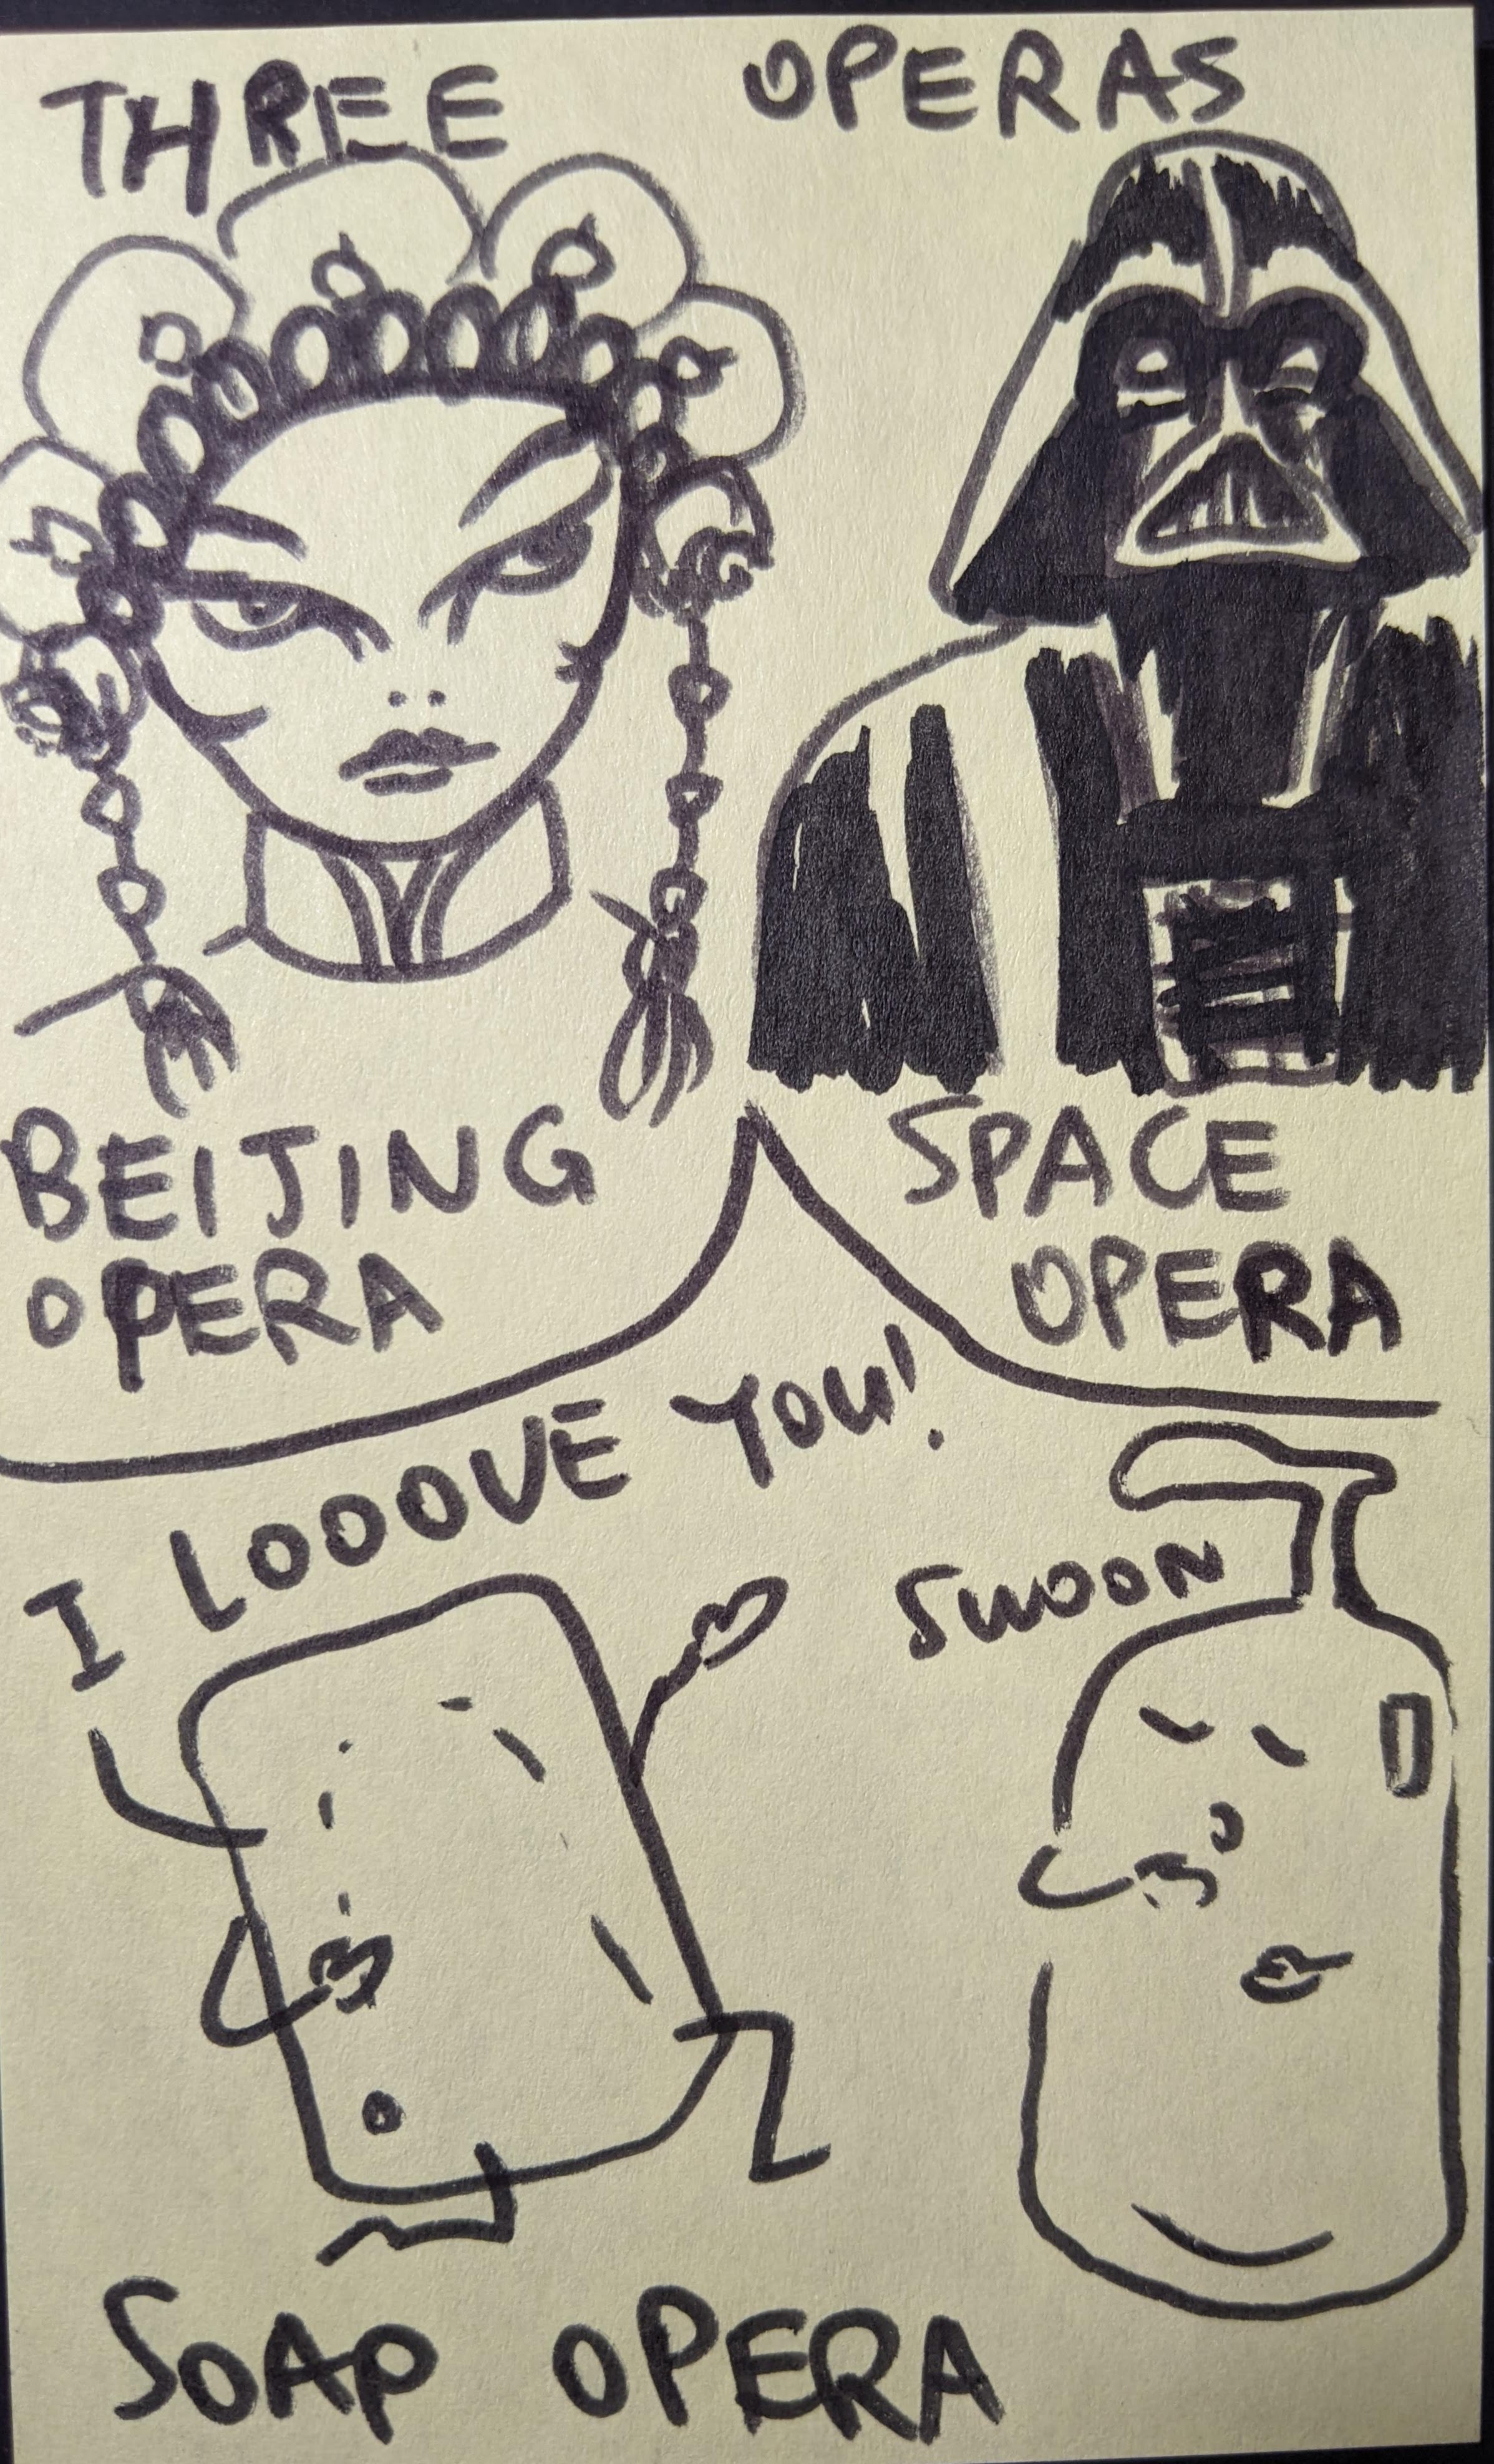 THREE OPERAS
BEIJING
OPERA
SPACE
OPERA
I LOOOVE YOU!
SWOON
SOAP OPERA